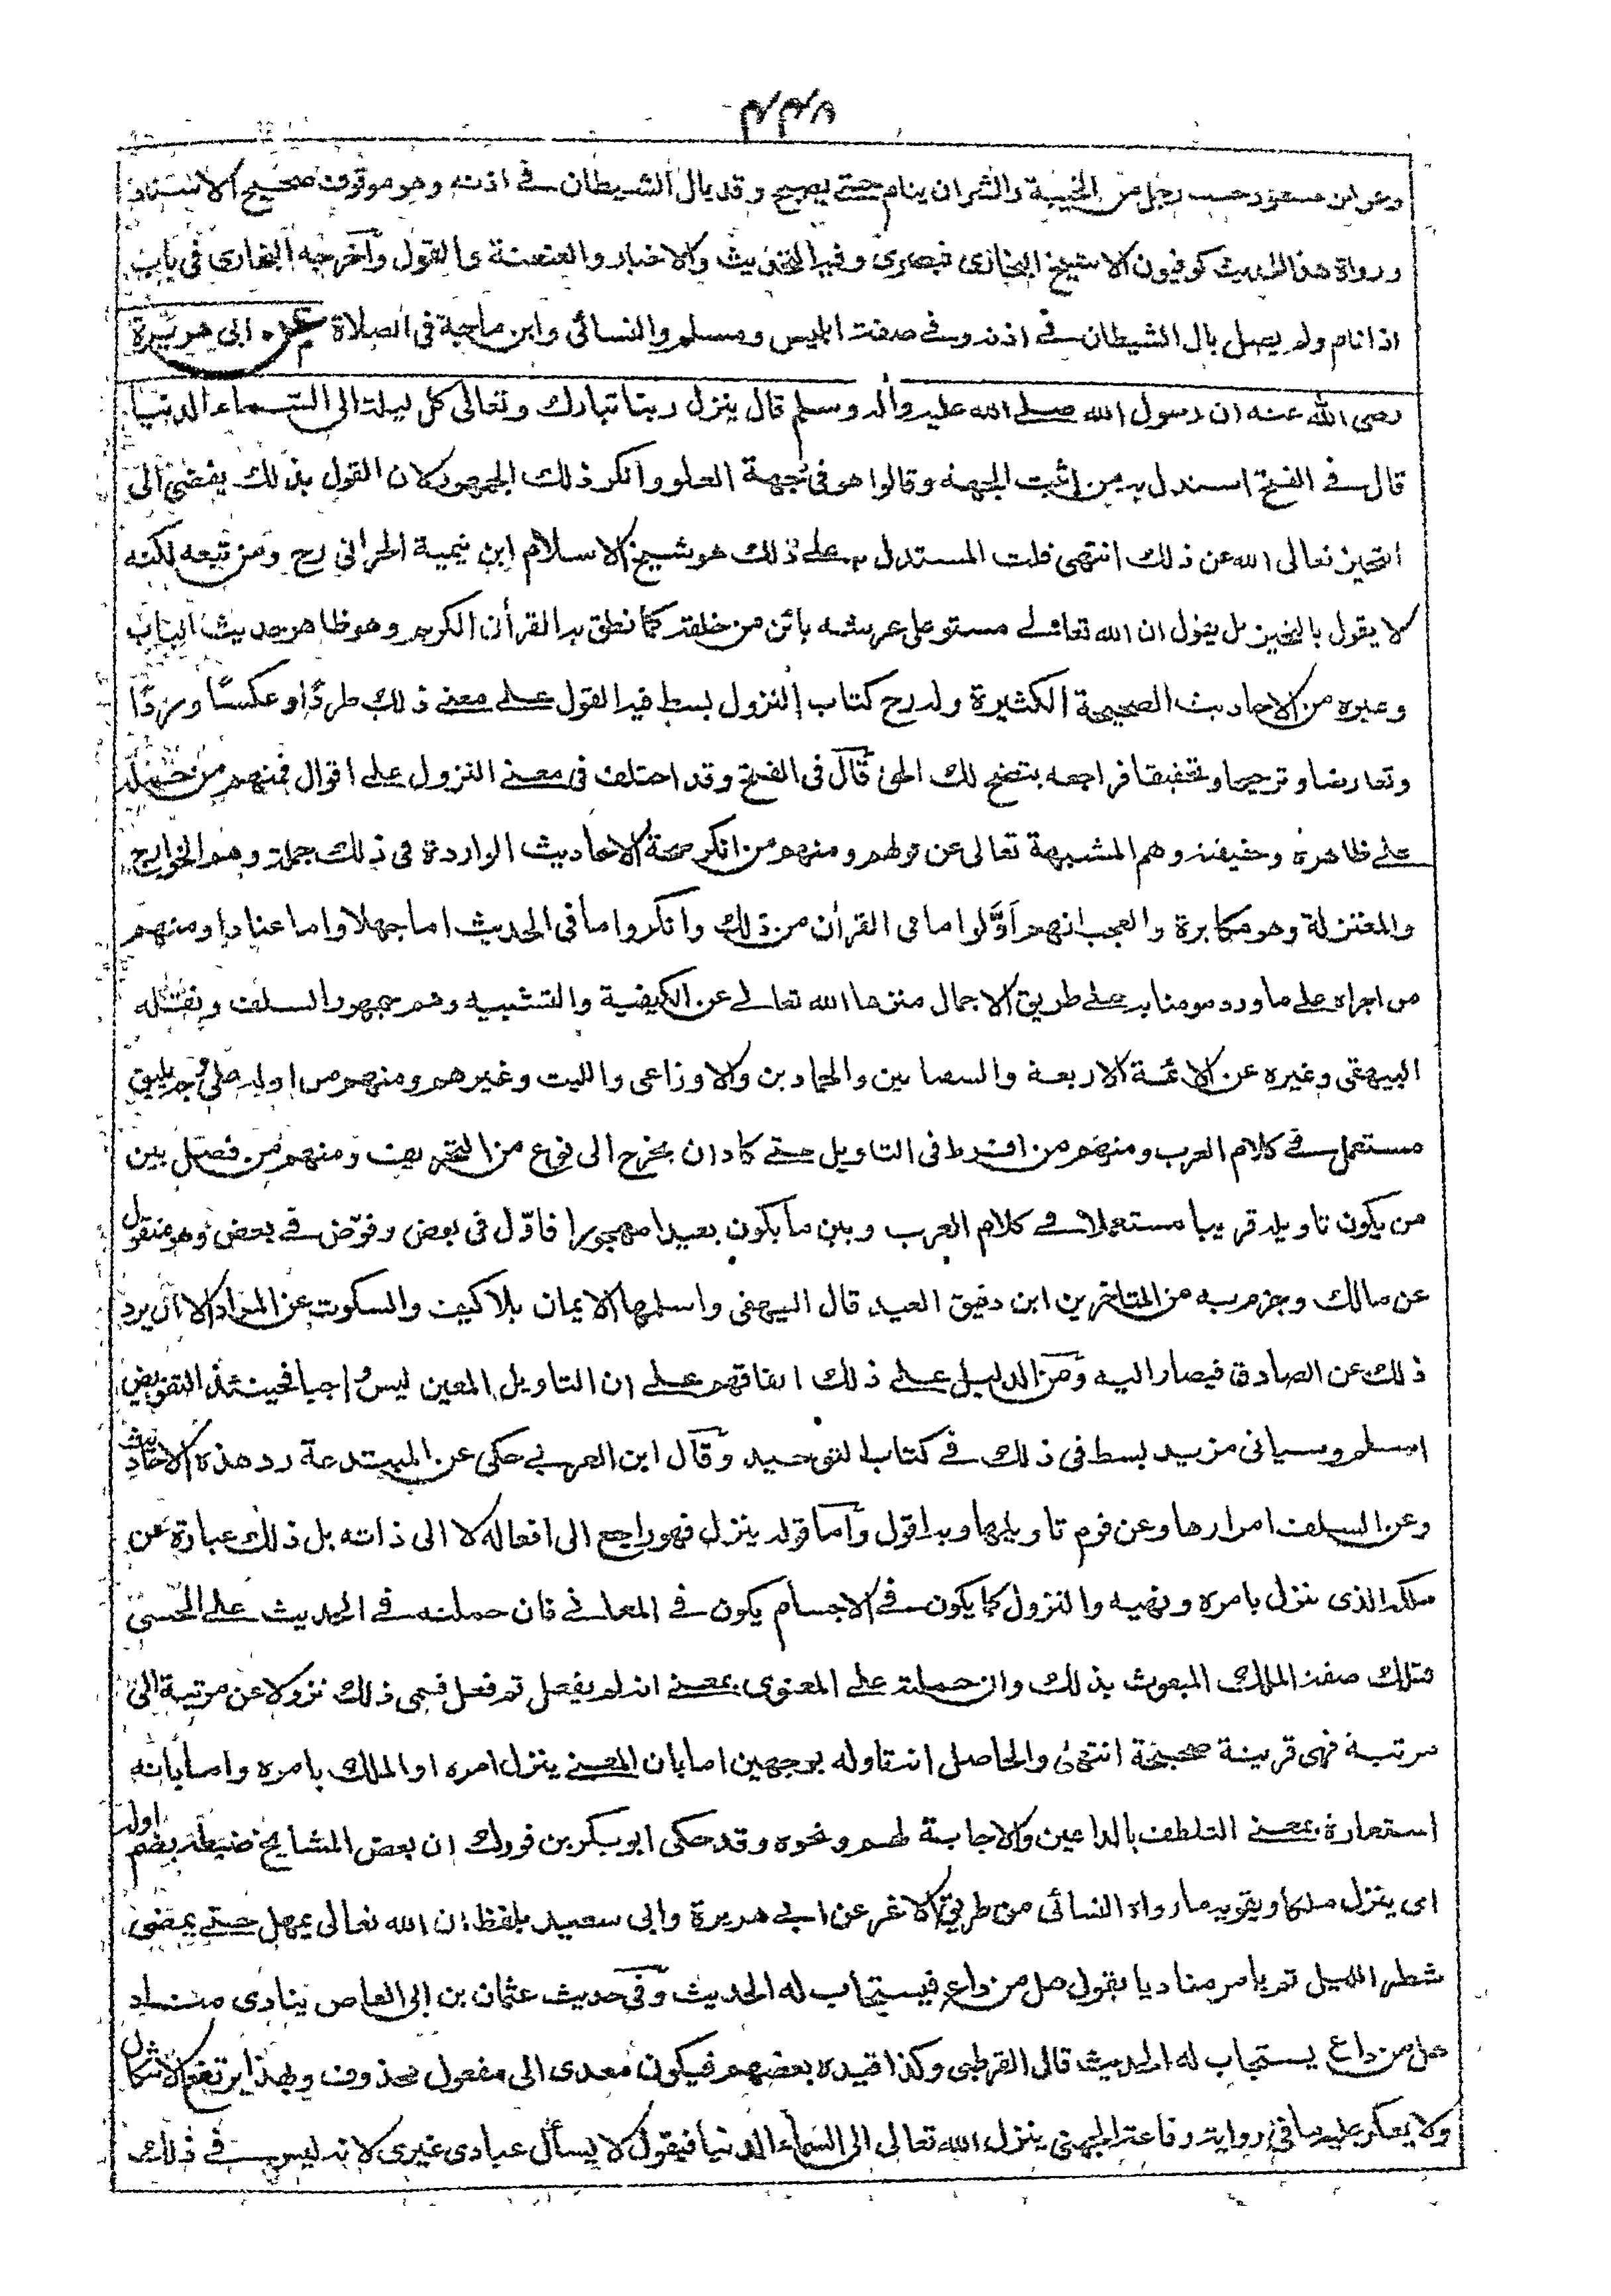 ٢٣٨
وعن ابن مسعود حسب رجل من الخيبة والشر ان ينام حتى يصبح وقد بال الشيطان فى اذنه وهو موقوف صحيح الاسناد
ورواة هذا الحديث كوفيون الا شيخ البخارى فبصرى وفيه التحديث والاخبار والعنعنة والقول وأخرجه البخارى فى باب
اذا نام ولم يصل بال الشيطان فى اذنه وفى صفة ابليس ومسلم والنسائى وابن ماجة فى الصلاة عن ابى هريرة
رضى الله عنه ان رسول الله صلى الله عليه واله وسلم قال ينزل ربنا تبارك وتعالى كل ليلة الى السماء الدنيا
قال فى الفتح استدل به من اثبت الجهة وقالوا هو فى جهة العلو وانكر ذلك الجمهور لان القول بذلك يفضى الى
التحيز تعالى الله عن ذلك انتهى قلت المستدل به على ذلك هو شيخ الاسلام ابن تيمية الحرانى رح ومن تبعه لكنه
لا يقول بالتحيز بل يقول ان الله تعالى مستو على عرشه بائن من خلقه كما نطق به القرأن الكريم وهو ظاهر حديث الباب
وغيره من الاحاديث الصحيحة الكثيرة وله رح كتاب النزول بسط فيه القول على معنى ذلك طردًا وعكسًا وردًا
وتعارضا وترجيحا وتحقيقا فراجعه يتضح لك الحق قال فى الفتح وقد اختلف فى معنى النزول على اقوال فمنهم من حمله
على ظاهره وحقيقته وهم المشبهة تعالى عن قولهم ومنهم من انكر صحة الاحاديث الواردة فى ذلك جملة وهم الخوارج
والمعتزلة وهو مكابرة والعجب انهم أوّلوا ما فى القرأن من ذلك وانكروا ما فى الحديث اما جهلا واما عنادا ومنهم
من اجراه على ما ورد مومنا به على طريق الاجمال منزها الله تعالى عن الكيفية والتشبيه وهم جمهور السلف ونقله
البيهقى وغيره عن الائمة الاربعة والسفيانين والحمادين والاوزاعى والليث وغيرهم ومنهم من اوله على وجه يليق
مستعمل فى كلام العرب ومنهم من افرط فى التاويل حتى كاد ان يخرج الى نوع من التحريف ومنهم من فصل بين
من يكون تاويله قريبا مستعملا فى كلام العرب وبين ما يكون بعيدا مهجورا فاوّل فى بعض وفوّض فى بعض وهو منقول
عن مالك وجزم به من المتاخرين ابن دقيق العيد قال البيهقى واسلمها الايمان بلا كيف والسكوت عن المراد الا ان يرد
ذلك عن الصادق فيصار اليه ومن الدليل على ذلك اتفاقهم على ان التاويل المعين ليس واجبا فحينئذ التفويض
اسلم وسيانى مزيد بسط فى ذلك فى كتاب التوحيد وقال ابن العربى حكى عن المبتدعة رد هذه الاحاديث
وعن السلف امرارها وعن قوم تاويلها وبه اقول وأما قوله ينزل فهو راجع الى افعاله لا الى ذاته بل ذلك عبارة عن
ملكه الذى ينزل بامره ونهيه والنزول كما يكون فى الاجسام يكون فى المعانى فان حملته فى الحديث على الحسى
فتلك صفة الملك المبعوث بذلك وان حملته على المعنوى بمعنى انه لم يفعل ثم فعل فسمى ذلك نزولا عن مرتبة الى
مرتبة فهى قرينة صحيحة انتهى والحاصل انه تاوله بوجهين اما بان المعنى ينزل امره او الملك بامره واما بانه
استعارة بمعنى التلطف بالداعين والاجابة لهم ونحوه وقد حكى ابو بكر بن فورك ان بعض المشايخ ضبطه بضم اوله
اى ينزل ملكا ويقويه ما رواه النسائى من طريق الاغر عن ابى هريرة وابى سعيد بلفظ ان الله تعالى يمهل حتى يمضى
شطر الليل ثم يامر مناديا يقول هل من داع فيستجاب له الحديث وفى حديث عثمان بن ابى العاص ينادى مناد
هل من داع يستجاب له الحديث قال القرطبى وكذا قيده بعضهم فيكون معدى الى مفعول محذوف وبهذا يرتفع الاشكال
ولا يعكر عليه ما فى رواية رفاعة الجهنى ينزل الله تعالى الى السماء الدنيا فيقول لا يسأل عبادى غيرى لانه ليس فى ذلك